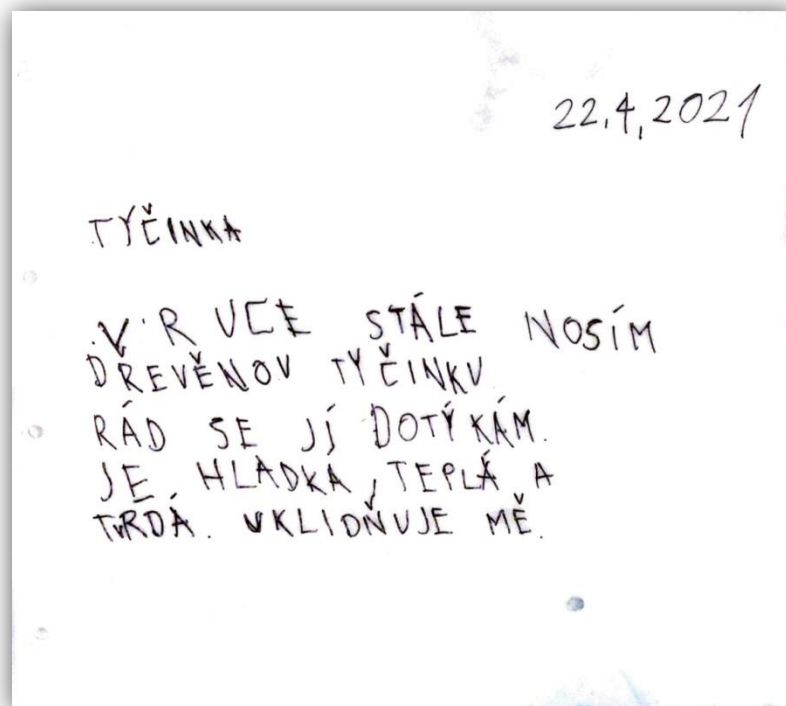 22.4.2021
TYČINKA
V RUCE STÁLE NOSÍM
DŘEVĚNOU TYČINKU
RÁD SE JÍ DOTÝKÁM.
JE HLADKÁ, TEPLÁ A
TVRDÁ. UKLIDŇUJE MĚ.